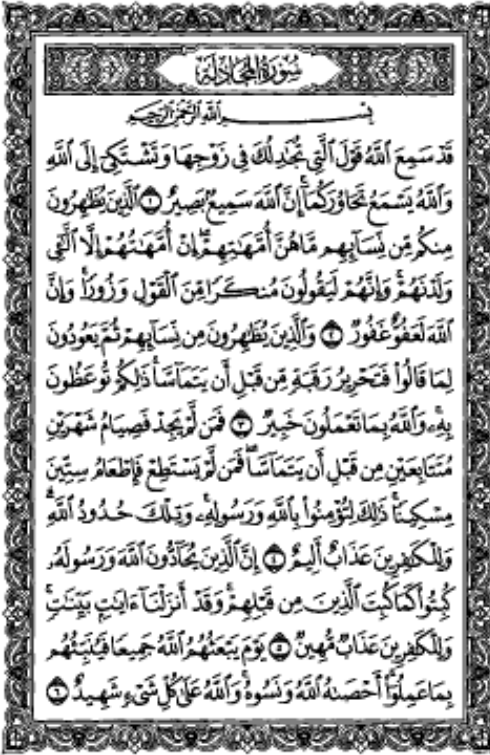 سُورَةُ المُجَادلَة
بِسْمِ اللَّهِ الرَّحْمَٰنِ الرَّحِيمِ
قَدْ سَمِعَ اللَّهُ قَوْلَ الَّتِي تُجَادِلُكَ فِي زَوْجِهَا وَتَشْتَكِي إِلَى اللَّهِ
وَاللَّهُ يَسْمَعُ تَحَاوُرَكُمَا إِنَّ اللَّهَ سَمِيعٌ بَصِيرٌ ١ الَّذِينَ يُظَاهِرُونَ
مِنكُم مِّن نِّسَائِهِم مَّا هُنَّ أُمَّهَاتِهِمْ إِنْ أُمَّهَاتُهُمْ إِلَّا الَّائِي
وَلَدْنَهُمْ وَإِنَّهُمْ لَيَقُولُونَ مُنكَرًا مِّنَ الْقَوْلِ وَزُورًا وَإِنَّ
اللَّهَ لَعَفُوٌّ غَفُورٌ ٢ وَالَّذِينَ يُظَاهِرُونَ مِن نِّسَائِهِمْ ثُمَّ يَعُودُونَ
لِمَا قَالُوا فَتَحْرِيرُ رَقَبَةٍ مِّن قَبْلِ أَن يَتَمَاسَّا ذَٰلِكُمْ تُوعَظُونَ
بِهِ وَاللَّهُ بِمَا تَعْمَلُونَ خَبِيرٌ ٣ فَمَن لَّمْ يَجِدْ فَصِيَامُ شَهْرَيْنِ
مُتَتَابِعَيْنِ مِن قَبْلِ أَن يَتَمَاسَّا فَمَن لَّمْ يَسْتَطِعْ فَإِطْعَامُ سِتِّينَ
مِسْكِينًا ذَٰلِكَ لِتُؤْمِنُوا بِاللَّهِ وَرَسُولِهِ وَتِلْكَ حُدُودُ اللَّهِ
وَلِلْكَافِرِينَ عَذَابٌ أَلِيمٌ ٤ إِنَّ الَّذِينَ يُحَادُّونَ اللَّهَ وَرَسُولَهُ
كُبِتُوا كَمَا كُبِتَ الَّذِينَ مِن قَبْلِهِمْ وَقَدْ أَنزَلْنَا آيَاتٍ بَيِّنَاتٍ
وَلِلْكَافِرِينَ عَذَابٌ مُّهِينٌ ٥ يَوْمَ يَبْعَثُهُمُ اللَّهُ جَمِيعًا فَيُنَبِّئُهُم
بِمَا عَمِلُوا أَحْصَاهُ اللَّهُ وَنَسُوهُ وَاللَّهُ عَلَىٰ كُلِّ شَيْءٍ شَهِيدٌ ٦